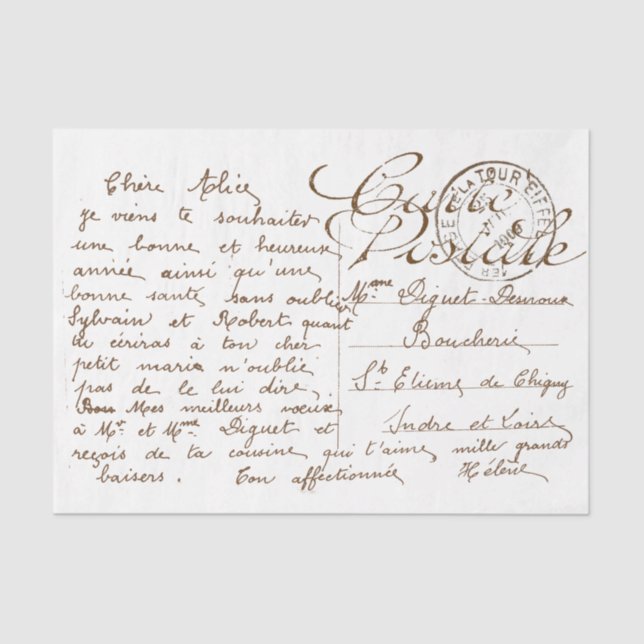 Chère Alice
je viens te souhaiter
une bonne et heureuse
année ainsi qu'une
bonne santé sans oublier
Sylvain et Robert quant
tu écriras à ton cher
petit mari n'oublié
pas de le lui dire,
Bon Mes meilleurs voeux
à Mr et Mme Diguet et
reçois de ta cousine qui t'aime mille grands
baisers. Ton affectionnée Hélène
Carte
Postale
LA TOUR EIFFEL
Mme Diguet-Desroux
Boucherie
St Etienne de Chigny
Indre et Loire